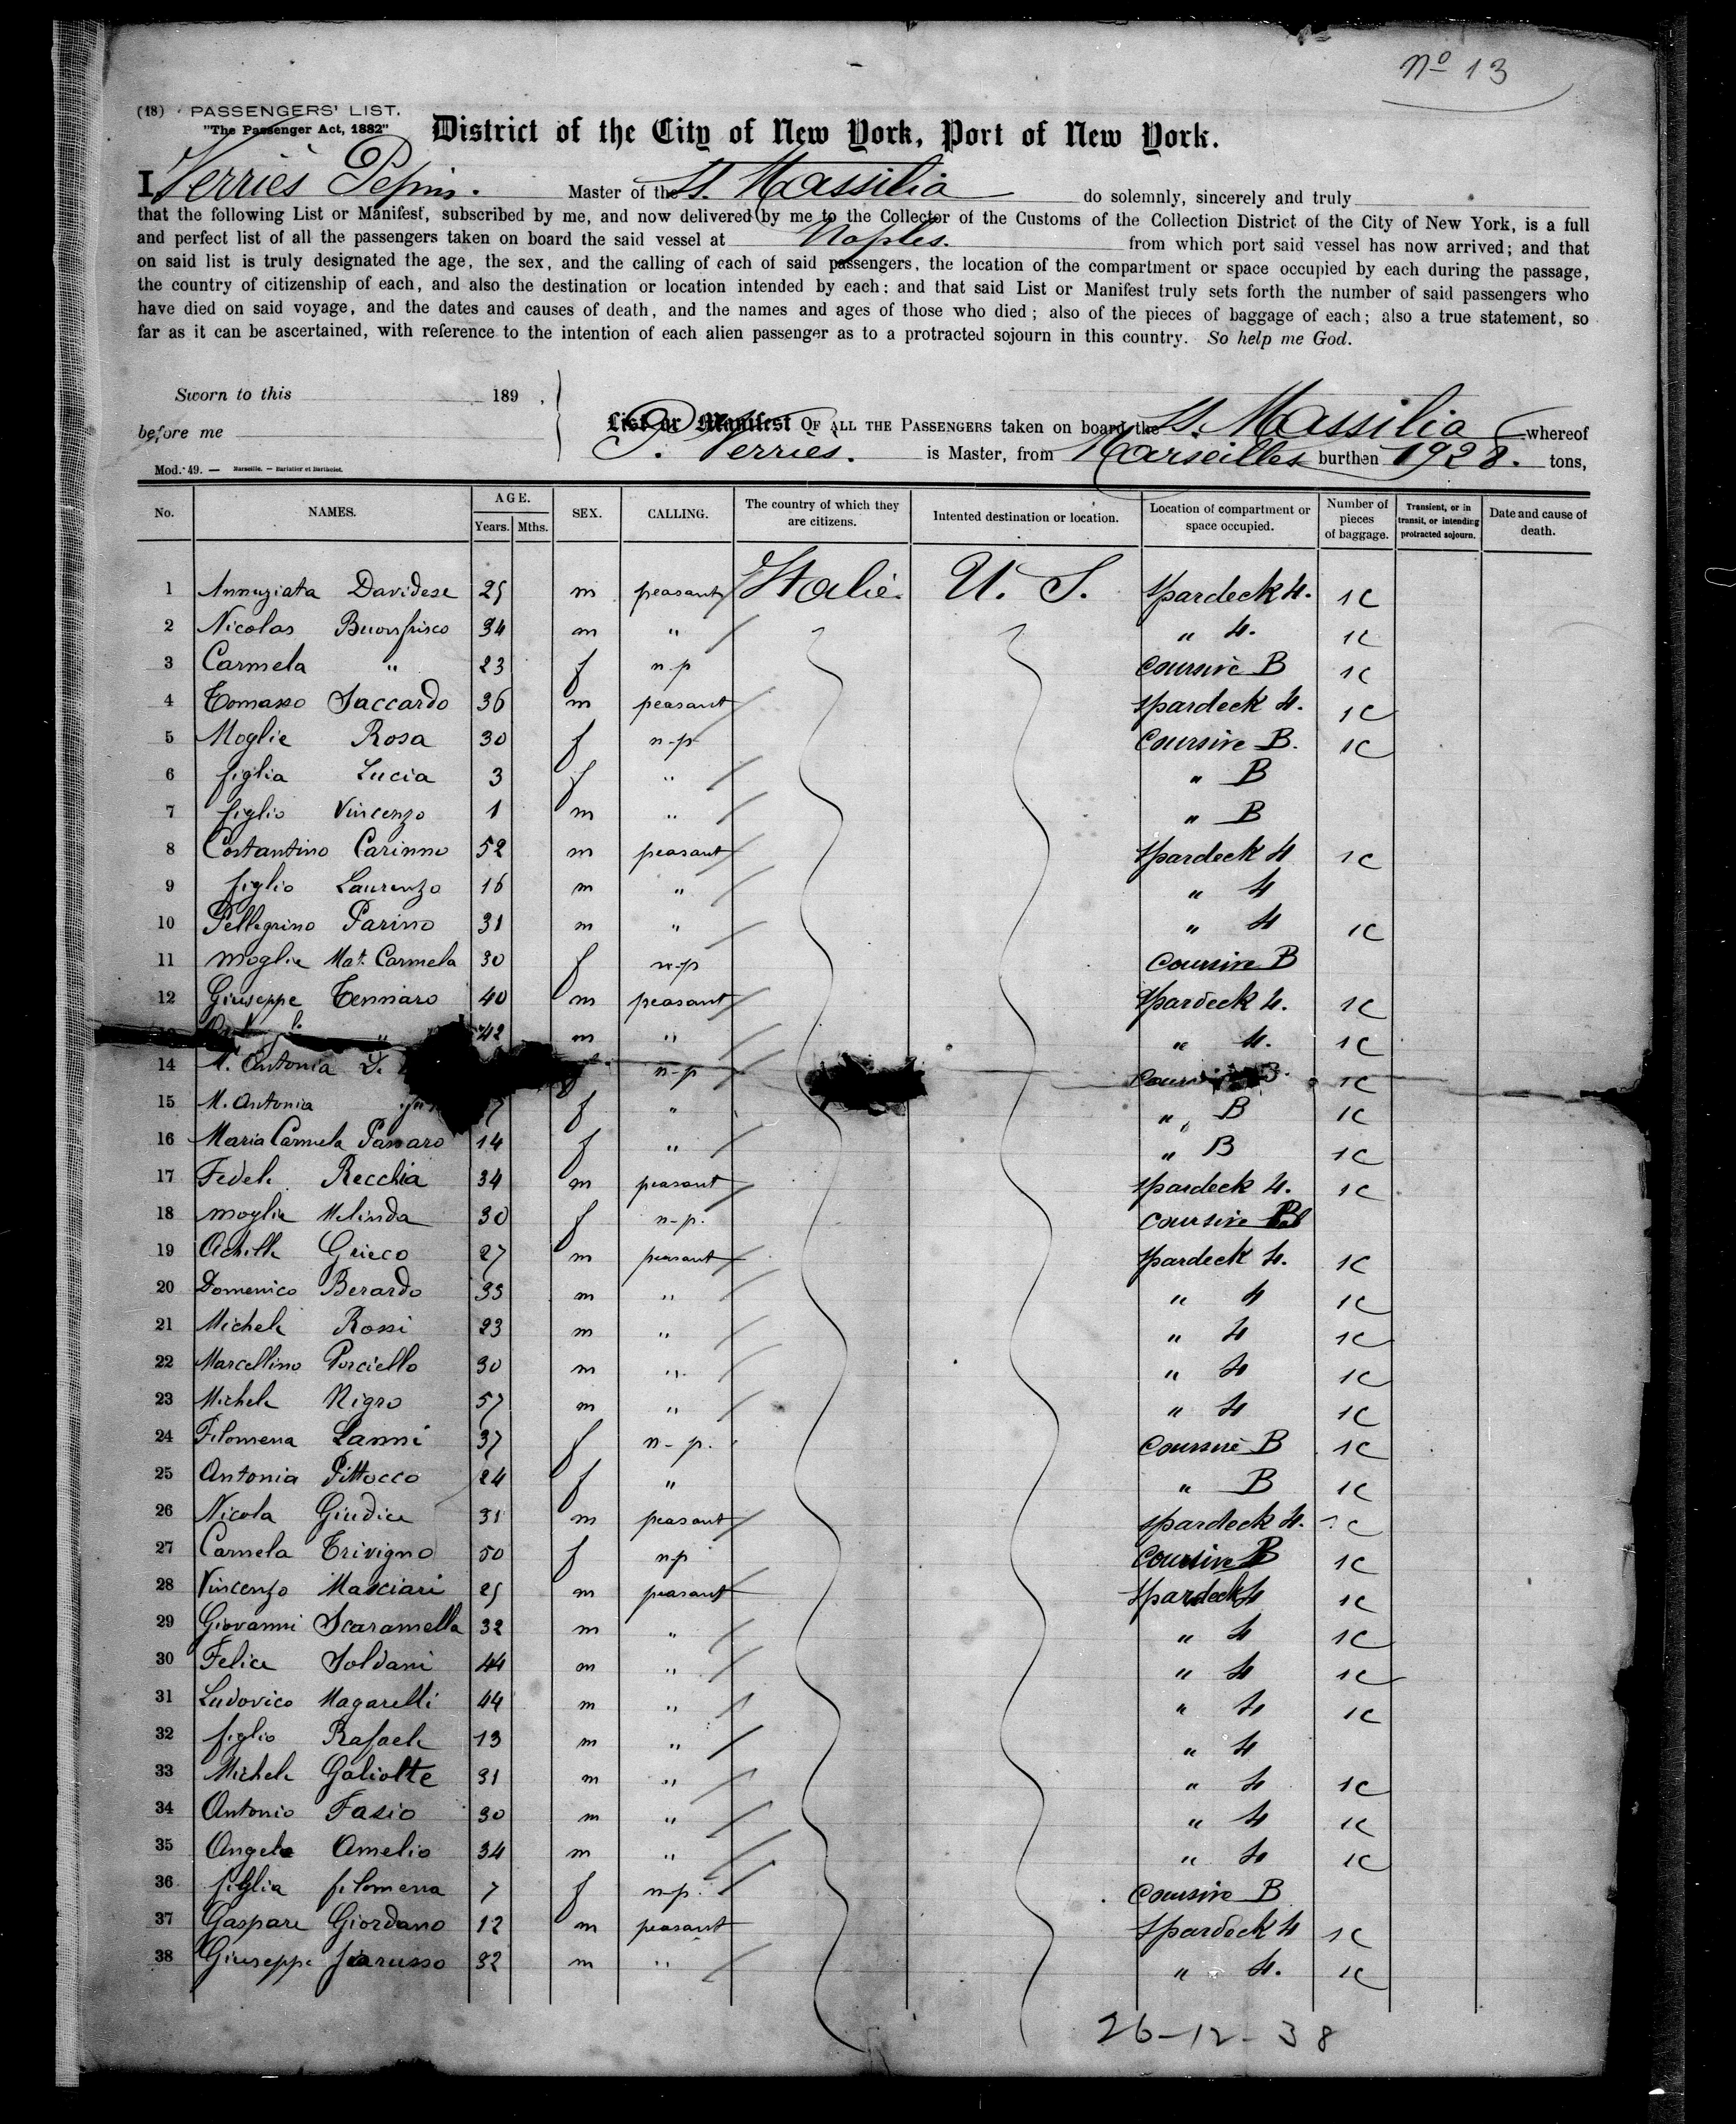 Nº 13
(18) PASSENGERS' LIST.
"The Passenger Act, 1882"
District of the City of New York, Port of New York.
I, Verries Pepin. Master of the St. Massilia do solemnly, sincerely and truly
that the following List or Manifest, subscribed by me, and now delivered by me to the Collector of the Customs of the Collection District of the City of New York, is a full
and perfect list of all the passengers taken on board the said vessel at Naples. from which port said vessel has now arrived; and that
on said list is truly designated the age, the sex, and the calling of each of said passengers, the location of the compartment or space occupied by each during the passage,
the country of citizenship of each, and also the destination or location intended by each: and that said List or Manifest truly sets forth the number of said passengers who
have died on said voyage, and the dates and causes of death, and the names and ages of those who died; also of the pieces of baggage of each; also a true statement, so
far as it can be ascertained, with reference to the intention of each alien passenger as to a protracted sojourn in this country. So help me God.
Sworn to this 189 ,
before me
Mod. 49. — Marseille. — Barlatier et Barthelet.
List or Manifest OF ALL THE PASSENGERS taken on board the St. Massilia whereof
P. Verries. is Master, from Marseilles burthen 1928. tons,
No. NAMES. AGE. Years. Mths. SEX. CALLING. The country of which they are citizens. Intented destination or location. Location of compartment or space occupied. Number of pieces of baggage. Transient, or in transit, or intending protracted sojourn. Date and cause of death.
1 Annuziata Davidese 25 m peasant Italie. U. S. Spardeck 4. 1C
2 Nicolas Buonfrisco 34 m " " 4. 1C
3 Carmela " 23 f n-p Coursive B 1C
4 Tomasso Saccardo 36 m peasant spardeck 4. 1C
5 Moglie Rosa 30 f n-p Coursive B. 1C
6 figlia Lucia 3 f " " B
7 figlio Vincenzo 1 m " " B
8 Costantino Carinno 52 m peasant Spardeck 4 1C
9 figlio Laurenzo 16 m " " 4
10 Pellegrino Parino 31 m " " 4 1C
11 moglie Mat. Carmela 30 f n-p Coursive B
12 Giuseppe Tennaro 40 m peasant Spardeck 4. 1C
" 42 m " " 4. 1C
14 M. Antonia D. n-p 1C
15 M. Antonia 7 f " " B 1C
16 Maria Carmela Passaro 14 f " " B 1C
17 Fedele Recchia 34 m peasant spardeck 4. 1C
18 moglie Melinda 30 f n-p. Coursive B
19 Achille Grieco 27 m peasant Spardeck 4. 1C
20 Domenico Berardo 33 m " " 4 1C
21 Michele Rossi 23 m " " 4 1C
22 Marcellino Porciello 30 m " " 4 1C
23 Michele Nigro 57 m " " 4 1C
24 Filomena Lanni 37 f n-p. Coursive B 1C
25 Antonia Pittocco 24 f " " B 1C
26 Nicola Giudice 31 m peasant spardeck 4. 1C
27 Carmela Trivigno 50 f n-p Coursive B 1C
28 Vincenzo Masciari 25 m peasant Spardeck 4 1C
29 Giovanni Scaramella 32 m " " 4 1C
30 Felice Soldani 44 m " " 4 1C
31 Ludovico Magarelli 44 m " " 4 1C
32 figlio Rafaele 13 m " " 4
33 Michele Galiotte 31 m " " 4 1C
34 Antonio Fasio 30 m " " 4 1C
35 Angelo Amelio 34 m " " 4 1C
36 figlia filomena 7 f n-p. Coursive B
37 Gaspare Giordano 12 m peasant Spardeck 4 1C
38 Giuseppe Jarusso 32 m " " 4. 1C
26-12-38